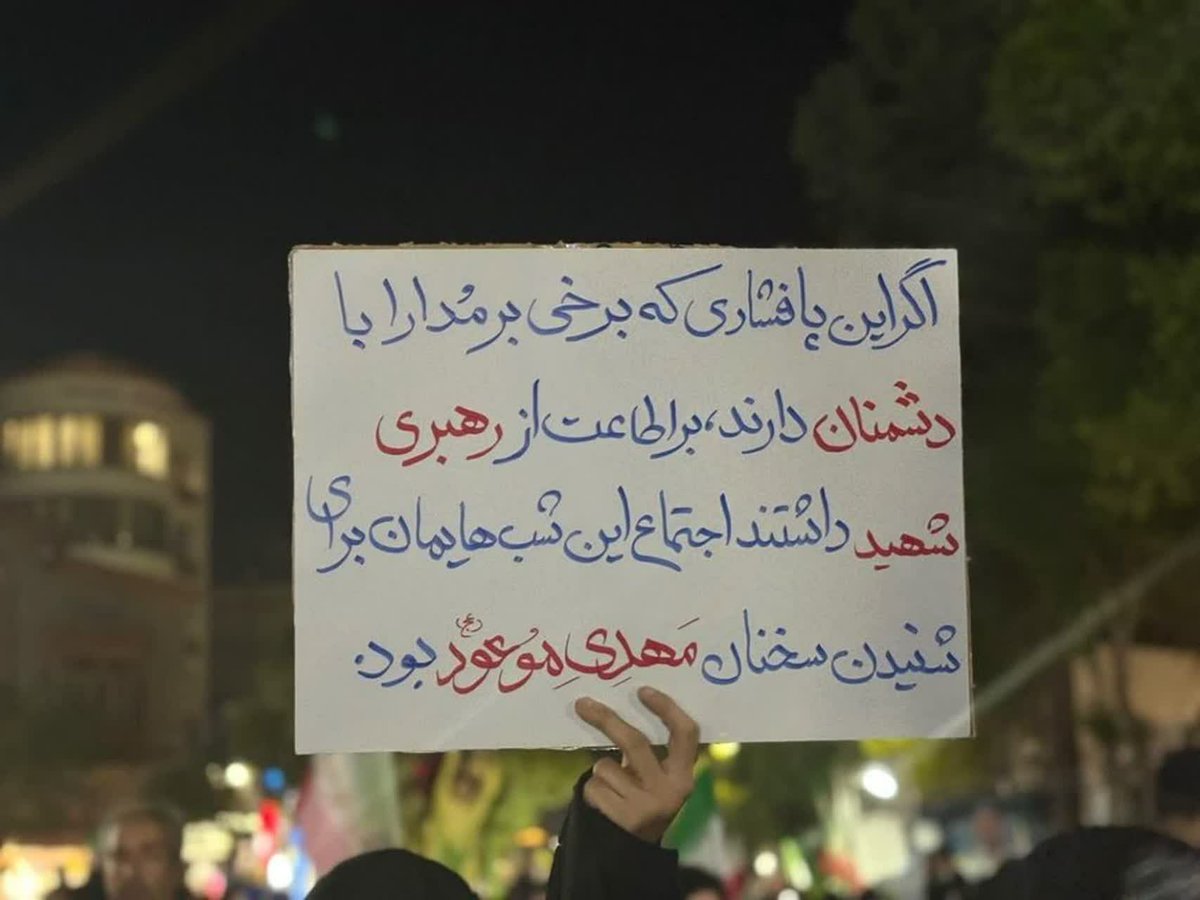 اگر این پافشاری که برخی بر مُدارا با
دشمنان دارند، بر اطاعت از رهبری
شهید داشتند اجتماع این شب‌هایمان برای
شنیدن سخنان مَهدیِ مُوعود(عج) بود.